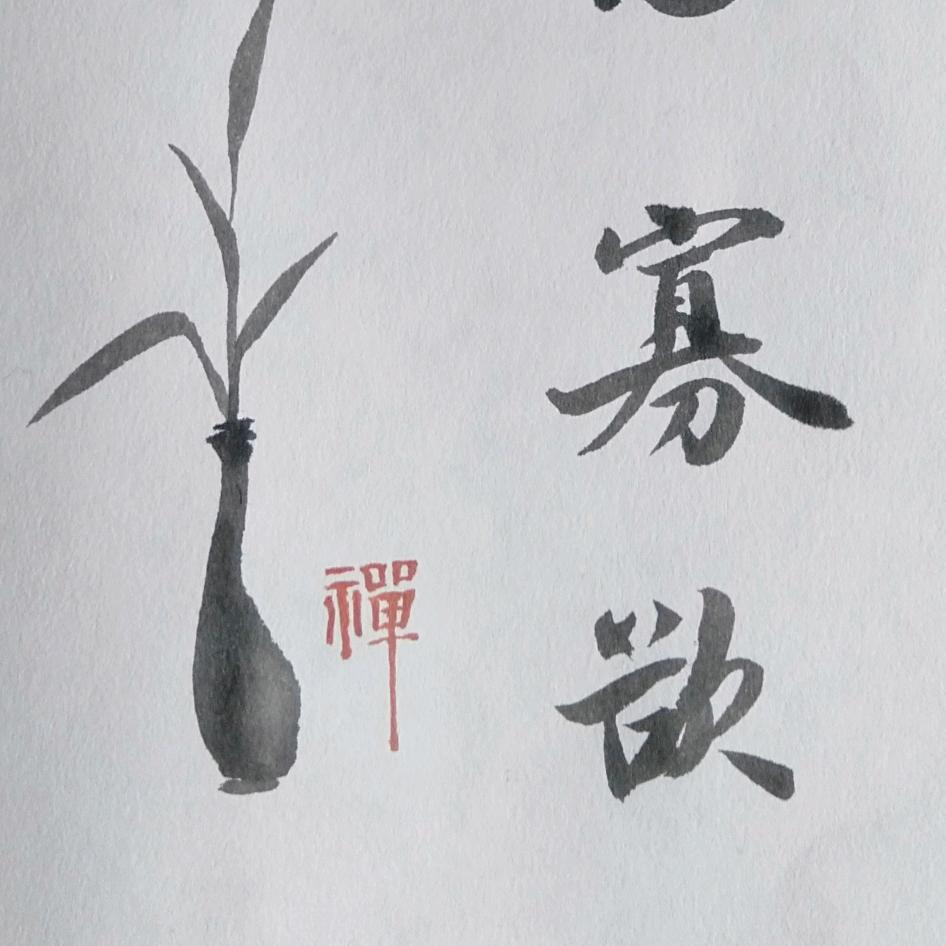 寡欲
禪